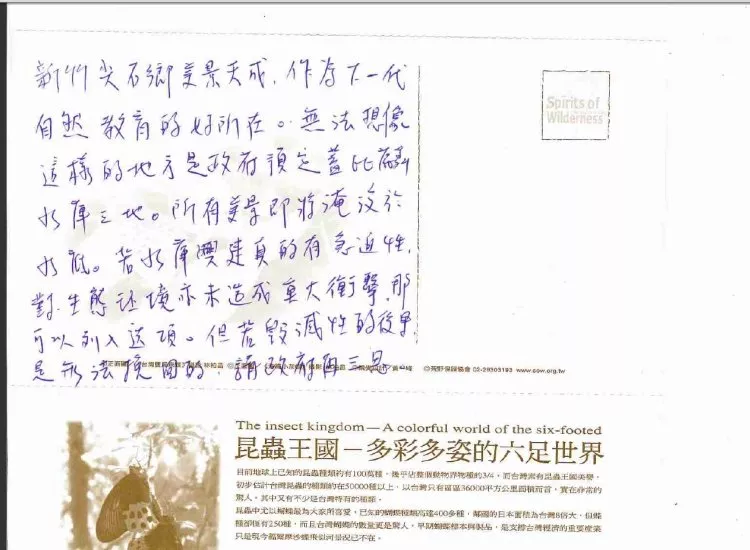 新竹尖石鄉美景天成,作為下一代
自然教育的好所在。無法想像
這樣的地方是政府預定蓋比麟
水庫之地。所有美景即將淹沒於
水底。若水庫興建真的有急迫性,
對生態环境亦未造成重大衝擊,那
可以列入选項。但若毀滅性的後果
是無法挽回的,請政府再三思
Spirits of
Wilderness
©荒野保護協會 02-29303193 www.sow.org.tw
The insect kingdom—A colorful world of the six-footed
昆蟲王國－多彩多姿的六足世界
目前地球上已知的昆蟲種類約有100萬種，幾乎佔整個動物界物種的3/4，而台灣素有昆蟲王國美譽，
初步估計台灣昆蟲的種類約在50000種以上，以台灣只有區區36000平方公里面積而言，實在非常的
驚人，其中又有不少是台灣特有的種類。
昆蟲中尤以蝴蝶最為大家所喜愛，已知的蝴蝶種類高達400多種，鄰國的日本面積為台灣8倍大，但蝶
種卻僅有250種，而且台灣蝴蝶的數量更是驚人，早期蝴蝶標本與製品，是支撐台灣經濟的重要產業
只是現今福爾摩沙蝶飛似河景況已不在。